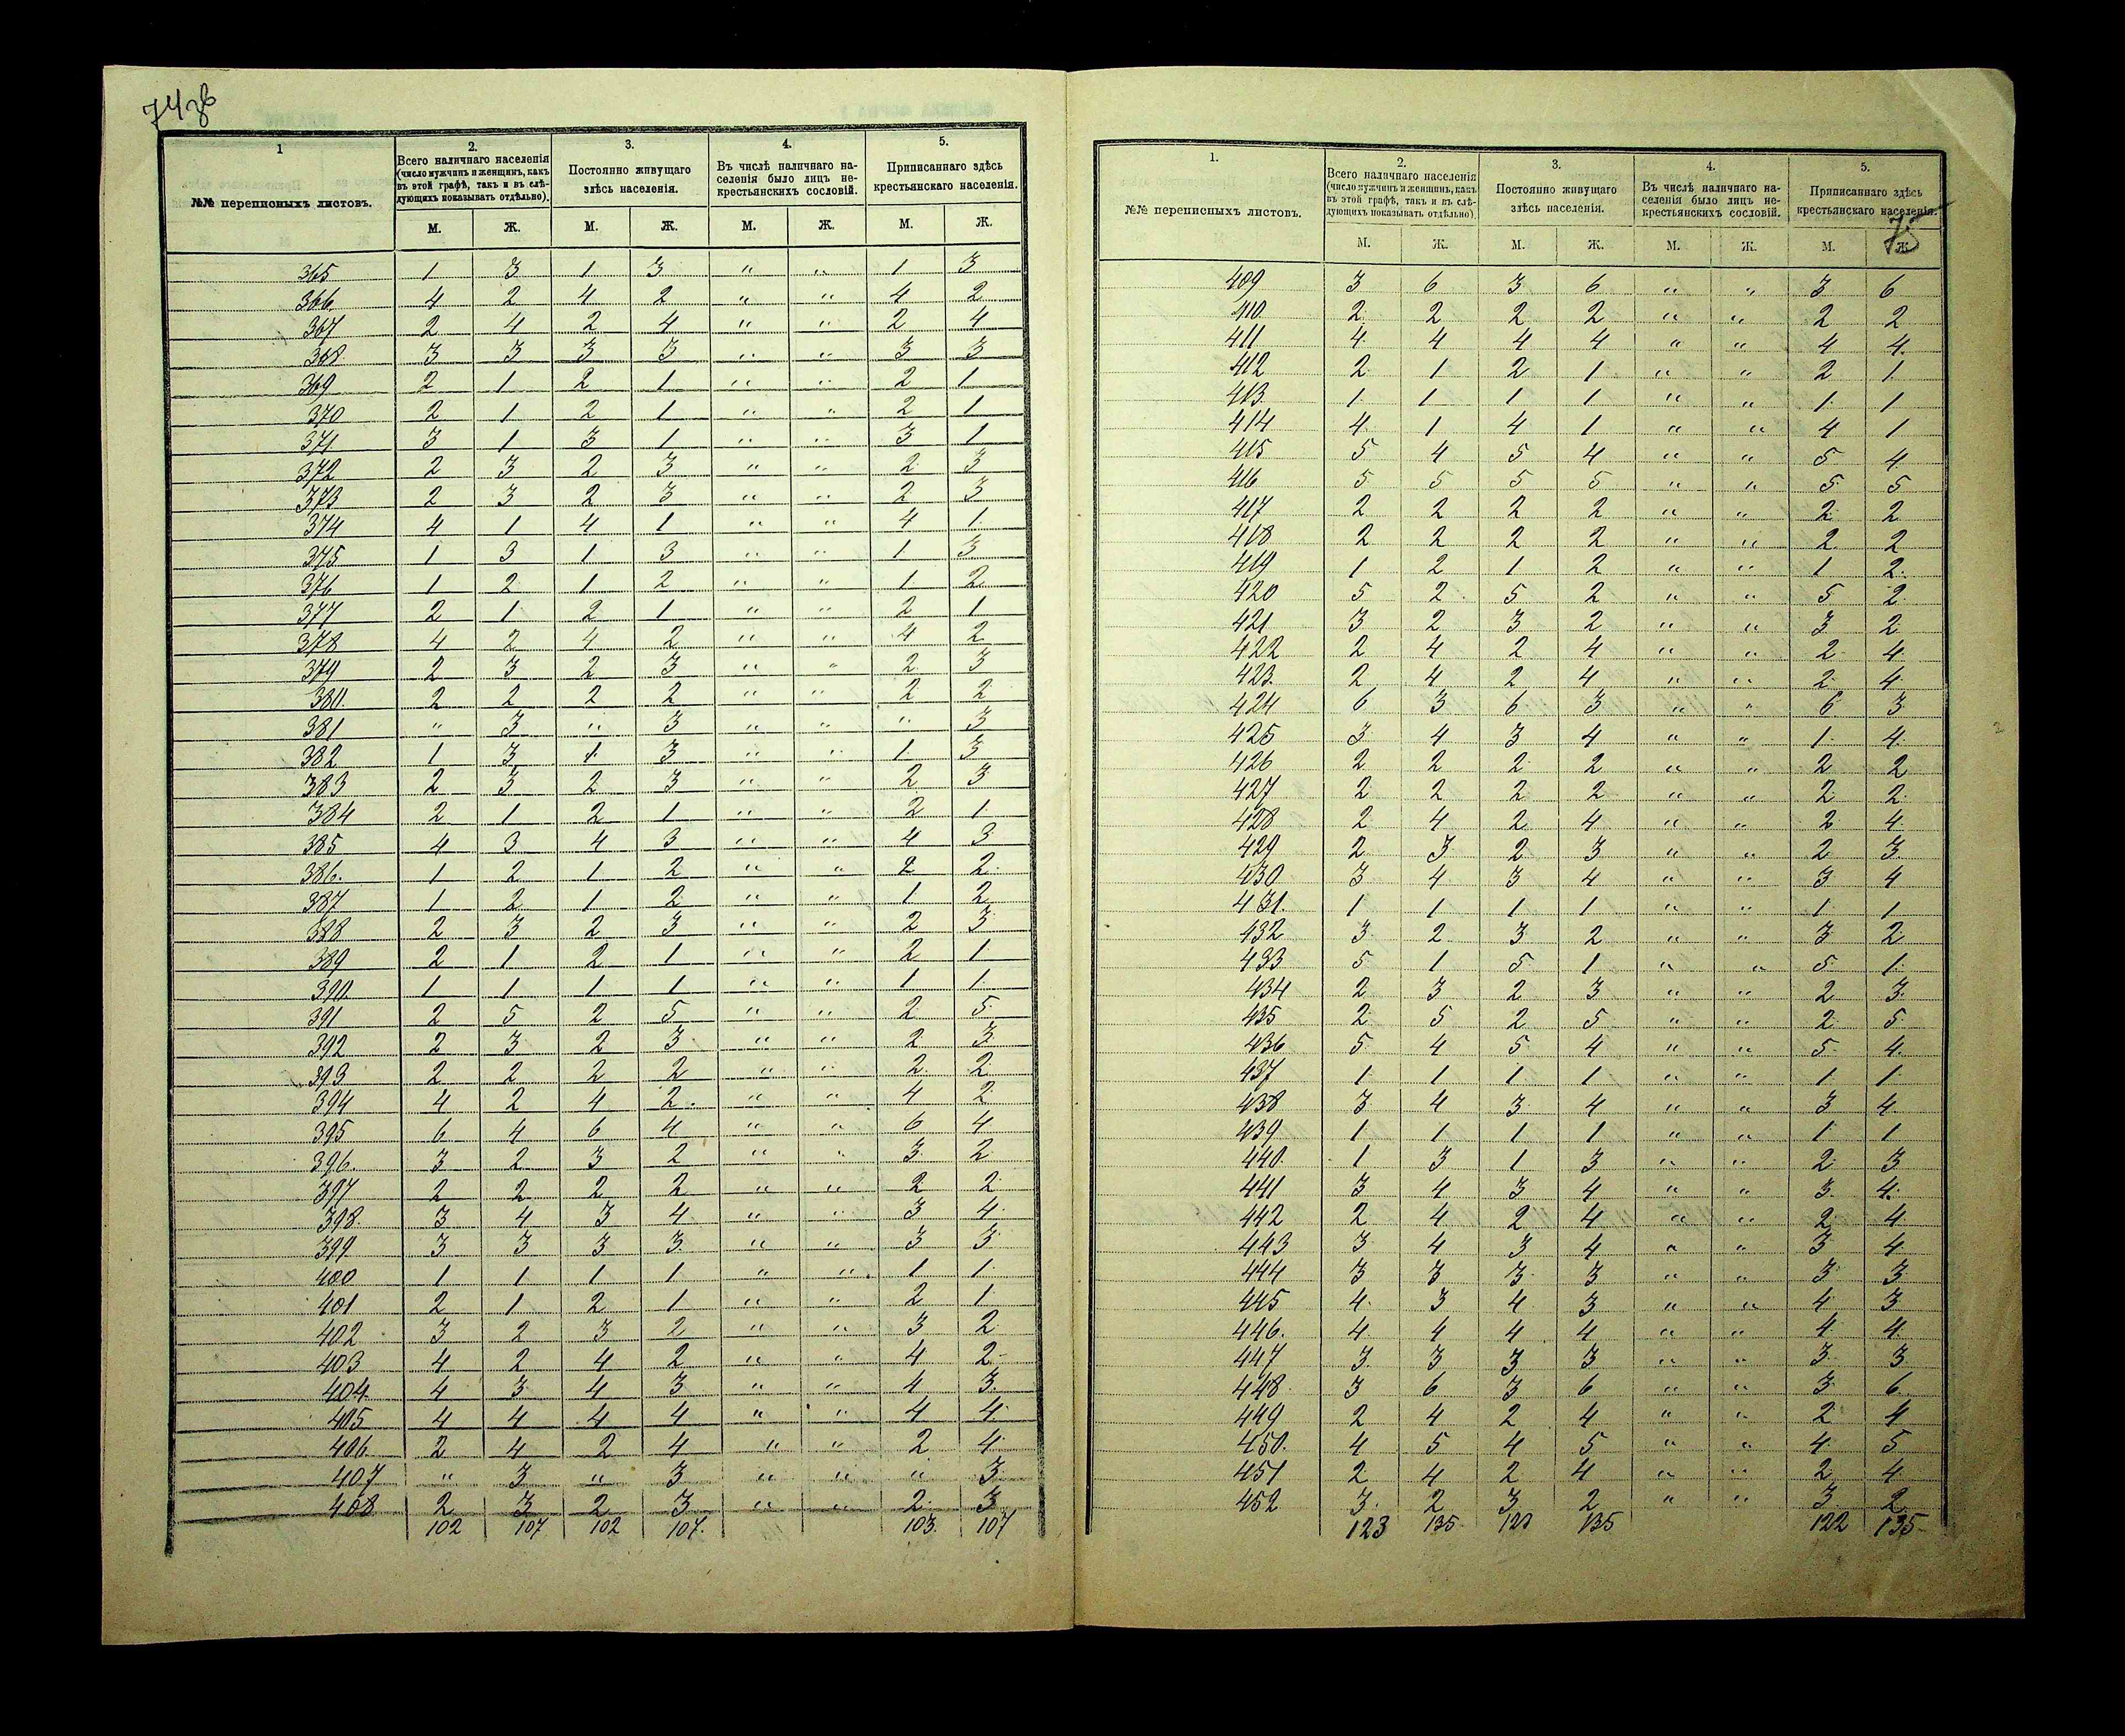 74 об
1 2. 3. 4. 5.
№№ переписныхъ листовъ. Всего наличнаго населенія (число мужчинъ и женщинъ, какъ въ этой графѣ, такъ и въ слѣдующихъ показывать отдѣльно). Постоянно живущаго здѣсь населенія. Въ числѣ наличнаго населенія было лицъ некрестьянскихъ сословій. Приписаннаго здѣсь крестьянскаго населенія.
М. Ж. М. Ж. М. Ж. М. Ж.
365 1 3 1 3 " " 1 3
366. 4 2 4 2 " " 4 2
367 2 4 2 4 " " 2 4
368 3 3 3 3 " " 3 3
369 2 1 2 1 " " 2 1
370 2 1 2 1 " " 2 1
371 3 1 3 1 " " 3 1
372 2 3 2 3 " " 2 3
373 2 3 2 3 " " 2 3
374 4 1 4 1 " " 4 1
375 1 3 1 3 " " 1 3
376 1 2 1 2 " " 1 2
377 2 1 2 1 " " 2 1
378 4 2 4 2 " " 4 2
379 2 3 2 3 " " 2 3
380. 2 2 2 2 " " 2 2
381 " 3 " 3 " " " 3
382 1 3 1 3 " " 1 3
383 2 3 2 3 " " 2 3
384 2 1 2 1 " " 2 1
385 4 3 4 3 " " 4 3
386. 1 2 1 2 " " 2 2
387 1 2 1 2 " " 1 2
388 2 3 2 3 " " 2 3
389 2 1 2 1 " " 2 1
390 1 1 1 1 " " 1 1
391 2 5 2 5 " " 2 5
392 2 3 2 3 " " 2 3
393 2 2 2 2 " " 2 2
394 4 2 4 2 " " 4 2
395 6 4 6 4 " " 6 4
396. 3 2 3 2 " " 3 2
397 2 2 2 2 " " 2 2
398. 3 4 3 4 " " 3 4
399 3 3 3 3 " " 3 3
400 1 1 1 1 " " 1 1
401 2 1 2 1 " " 2 1
402 3 2 3 2 " " 3 2
403 4 2 4 2 " " 4 2
404. 4 3 4 3 " " 4 3
405 4 4 4 4 " " 4 4
406. 2 4 2 4 " " 2 4
407 " 3 " 3 " " " 3
408 2 3 2 3 " " 2 3
102 107 102 107. 103. 107
75
1. 2. 3. 4. 5.
№№ переписныхъ листовъ. Всего наличнаго населенія (число мужчинъ и женщинъ, какъ въ этой графѣ, такъ и въ слѣдующихъ показывать отдѣльно). Постоянно живущаго здѣсь населенія. Въ числѣ наличнаго населенія было лицъ некрестьянскихъ сословій. Приписаннаго здѣсь крестьянскаго населенія.
М. Ж. М. Ж. М. Ж. М. Ж.
409 3 6 3 6 " " 3 6
410 2 2 2 2 " " 2 2
411 4 4 4 4 " " 4 4
412 2 1 2 1 " " 2 1
413 1 1 1 1 " " 1 1
414 4 1 4 1 " " 4 1
415 5 4 5 4 " " 5 4
416 5 5 5 5 " " 5 5
417 2 2 2 2 " " 2 2
418 2 2 2 2 " " 2 2
419 1 2 1 2 " " 1 2
420 5 2 5 2 " " 5 2
421 3 2 3 2 " " 3 2
422 2 4 2 4 " " 2 4
423. 2 4 2 4 " " 2 4
424 6 3 6 3 " " 6 3
425 3 4 3 4 " " 1 4
426 2 2 2 2 " " 2 2
427 2 2 2 2 " " 2 2
428 2 4 2 4 " " 2 4
429 2 3 2 3 " " 2 3
430 3 4 3 4 " " 3 4
431. 1 1 1 1 " " 1 1
432 3 2 3 2 " " 3 2
433 5 1 5 1 " " 5 1
434 2 3 2 3 " " 2 3
435 2 5 2 5 " " 2 5
436 5 4 5 4 " " 5 4
437 1 1 1 1 " " 1 1
438 3 4 3 4 " " 3 4
439 1 1 1 1 " " 1 1
440. 1 3 1 3 " " 2 3
441 3 4 3 4 " " 3 4
442 2 4 2 4 " " 2 4
443 3 4 3 4 " " 3 4
444 3 3 3 3 " " 3 3
445 4 3 4 3 " " 4 3
446. 4 4 4 4 " " 4 4
447 3 3 3 3 " " 3 3
448 3 6 3 6 " " 3 6
449 2 4 2 4 " " 2 4
450. 4 5 4 5 " " 4 5
451 2 4 2 4 " " 2 4
452 3 2 3 2 " " 3 2
123 135 123 135 122 135